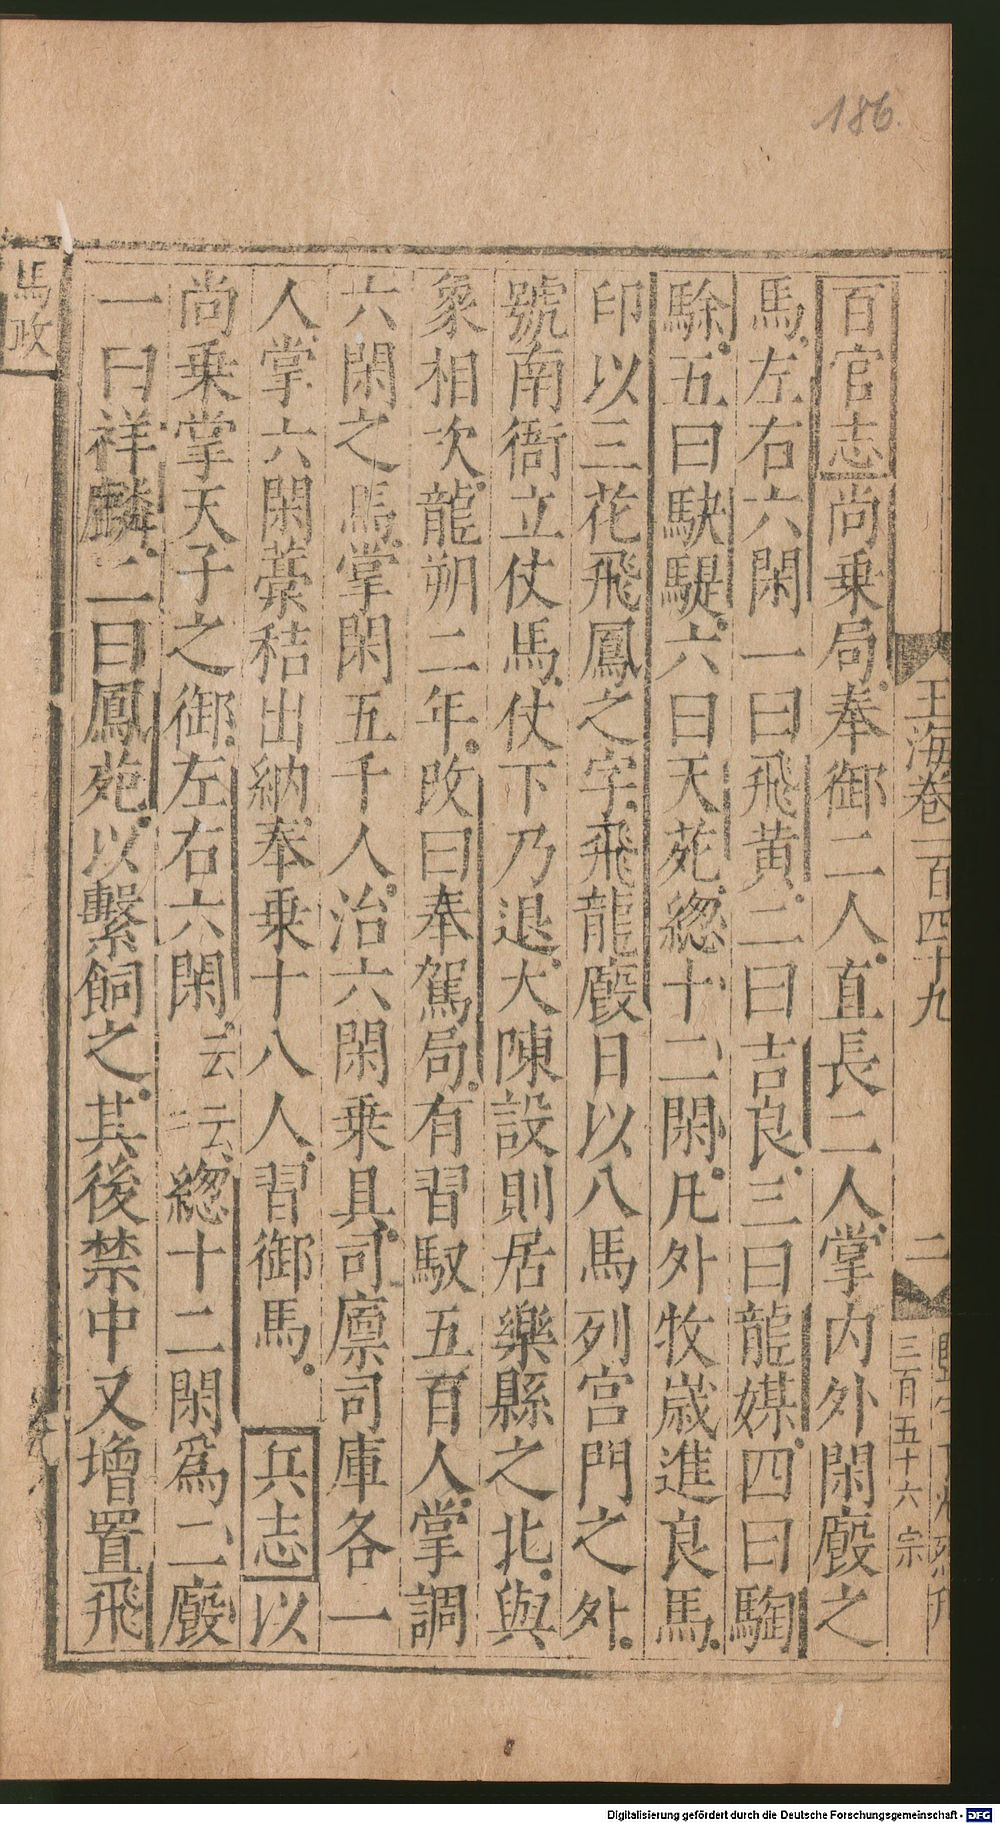 186.
玉海卷一百四十九
二
三百五十六
宗
百官志尚乗局奉御二人直長二人掌内外閑廄之
馬左右六閑一曰飛黄二曰吉良三曰龍媒四曰騊
駼五曰駃騠六曰天苑緫十二閑凡外牧歲進良馬
印以三花飛鳳之字飛龍廄日以八馬列宫門之外
號南衙立仗馬仗下乃退大陳設則居樂縣之北與
象相次龍朔二年改曰奉駕局有習馭五百人掌調
六閑之馬掌閑五千人治六閑乗具司廩司庫各一
人掌六閑藁秸出納奉乗十八人習御馬兵志以
尚乗掌天子之御左右六閑云云緫十二閑爲二廄
一曰祥麟二曰鳳苑以繫飼之其後禁中又增置飛
馬政
Digitalisierung gefördert durch die Deutsche Forschungsgemeinschaft - DFG